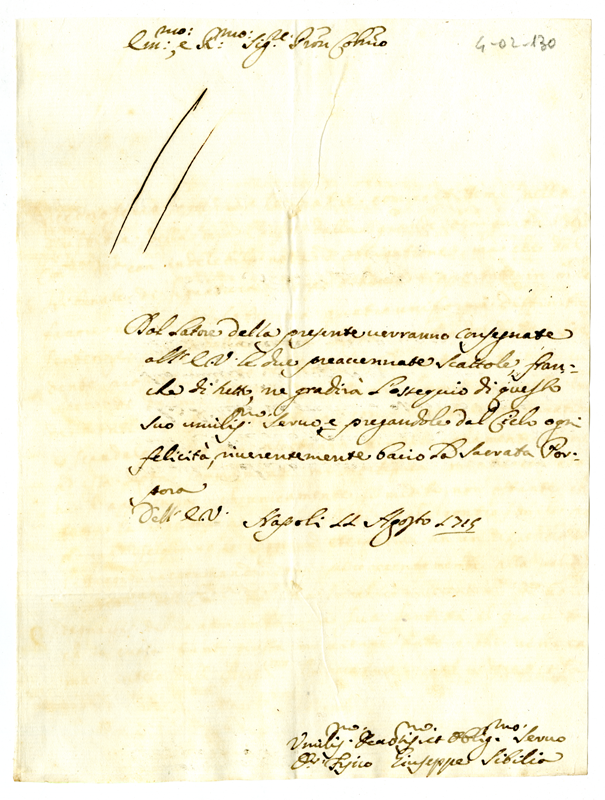 Em:mo: e R:mo: Sig:re Pron Colmo
4-02-130
Dal Latore della presente uerranno consegnate
all'E.V. le due preaccennate Scattole, fran-
che di tutto, ne gradirà l'ossequio di questo
suo umilis:mo Seruo, e pregandole dal Cielo ogni
felicità, riuerentemente bacio la Sacrata Por-
pora
Dell'E.V. Napoli 22 Agosto 1715
Vmilis:mo Deuotis:mo et Oblig:mo: Seruo
Giuseppe Sibilia